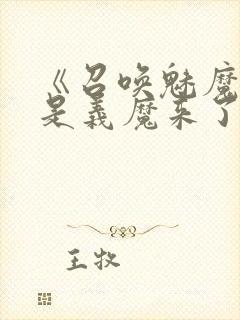 《召唤魅魔
是义魔来了
王牧